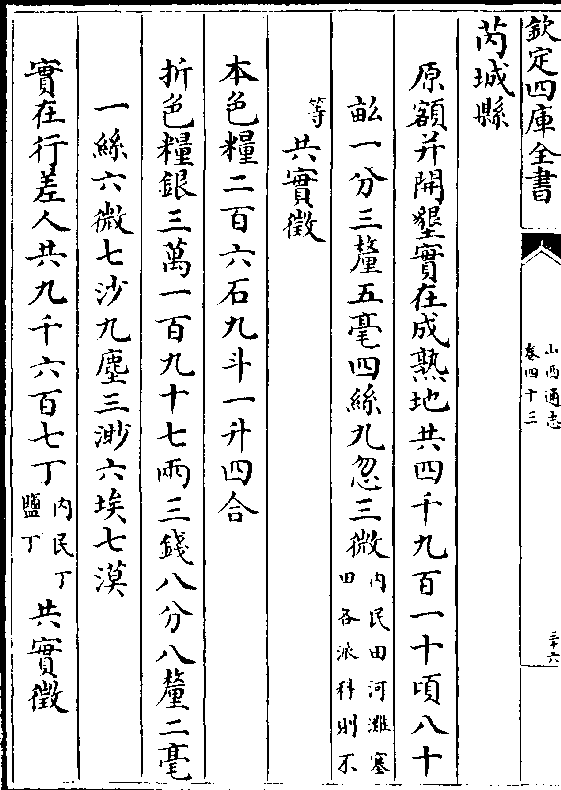 欽定四庫全書
山西通志
卷四十三
三十六
芮城縣
原額并開墾實在成熟地共四千九百一十頃八十
畝一分三釐五毫四絲九忽三微內民田河灘塞
田各派科則不
等共實徵
本色糧二百六石九斗一升四合
折色糧銀三萬一百九十七兩三錢八分八釐二毫
一絲六微七沙九塵三渺六埃七漠
實在行差人共九千六百七丁內民丁
鹽丁
共實徵